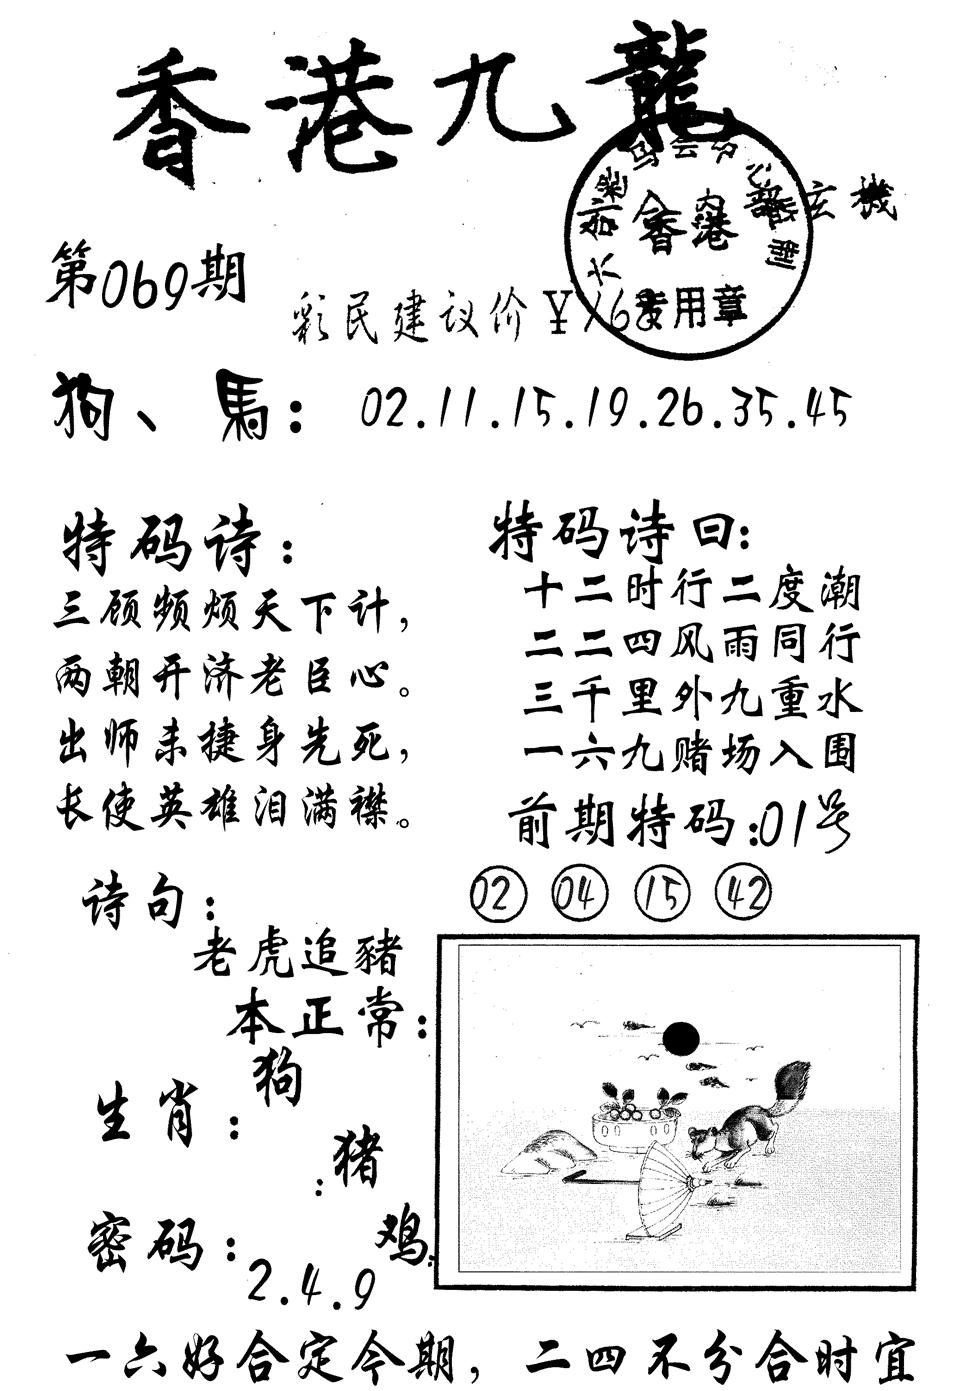 香港九龍
玄機
第069期
彩民建议价￥168
香港
专用章
狗、馬：02.11.15.19.26.35.45
特码诗：
三顾频烦天下计，
两朝开济老臣心。
出师未捷身先死，
长使英雄泪满襟。
特码诗曰：
十二时行二度潮
二二四风雨同行
三千里外九重水
一六九赌场入围
前期特码：01号
02 04 15 42
诗句：
老虎追豬
本正常：
狗
生肖：
：猪
鸡：
密码：
2.4.9
一六好合定今期，二四不分合时宜